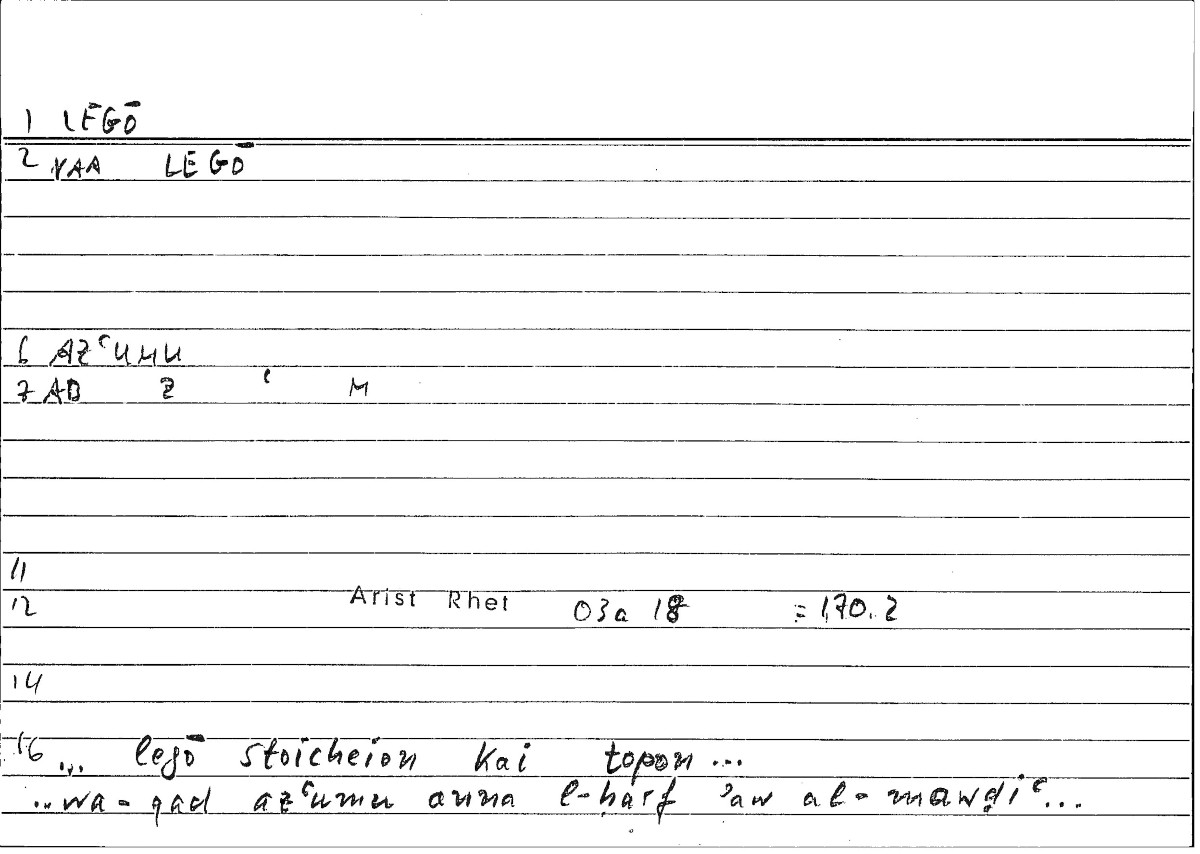 1 LĒGŌ
2 VAA LEGŌ
6 AZʿUMU
7 AB Z ʿ M
11
12 Arist Rhet 03a 18 = 170.2
14
16 ... legō stoicheion kai topon ...
...wa-qad azʿumu anna l-ḥarf ʾaw al-mawḍiʿ...